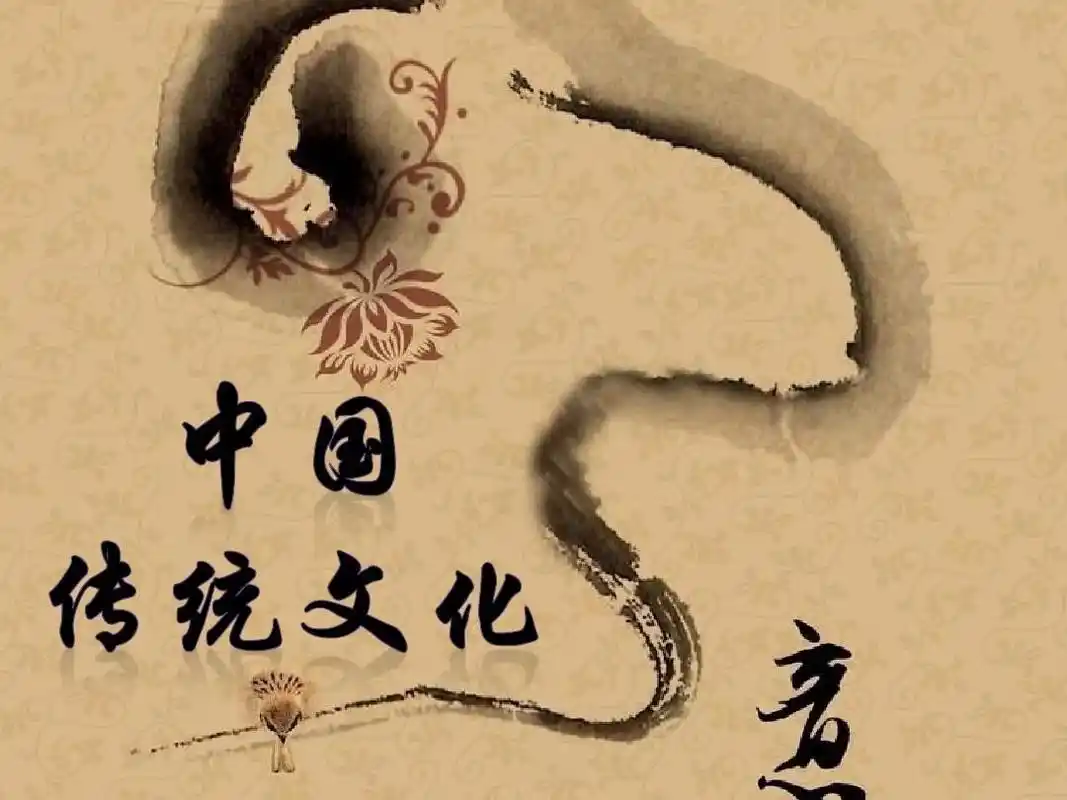 中国
传统文化